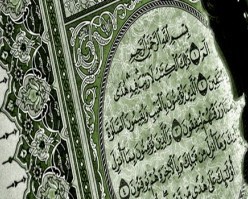 بِسْمِ اللَّهِ الرَّحْمَٰنِ الرَّحِيمِ
الٓمٓ ۝ ذَٰلِكَ الْكِتَابُ لَا رَيْبَ فِيهِ هُدًى
لِّلْمُتَّقِينَ ۝ الَّذِينَ يُؤْمِنُونَ بِالْغَيْبِ وَيُقِيمُونَ الصَّلَاةَ
وَمِمَّا رَزَقْنَاهُمْ يُنفِقُونَ ۝ وَالَّذِينَ يُؤْمِنُونَ بِمَا أُنزِلَ
إِلَيْكَ وَمَا أُنزِلَ مِن قَبْلِكَ وَبِالْآخِرَةِ هُمْ يُوقِنُونَ ۝
أُولَٰئِكَ عَلَىٰ هُدًى مِّن رَّبِّهِمْ